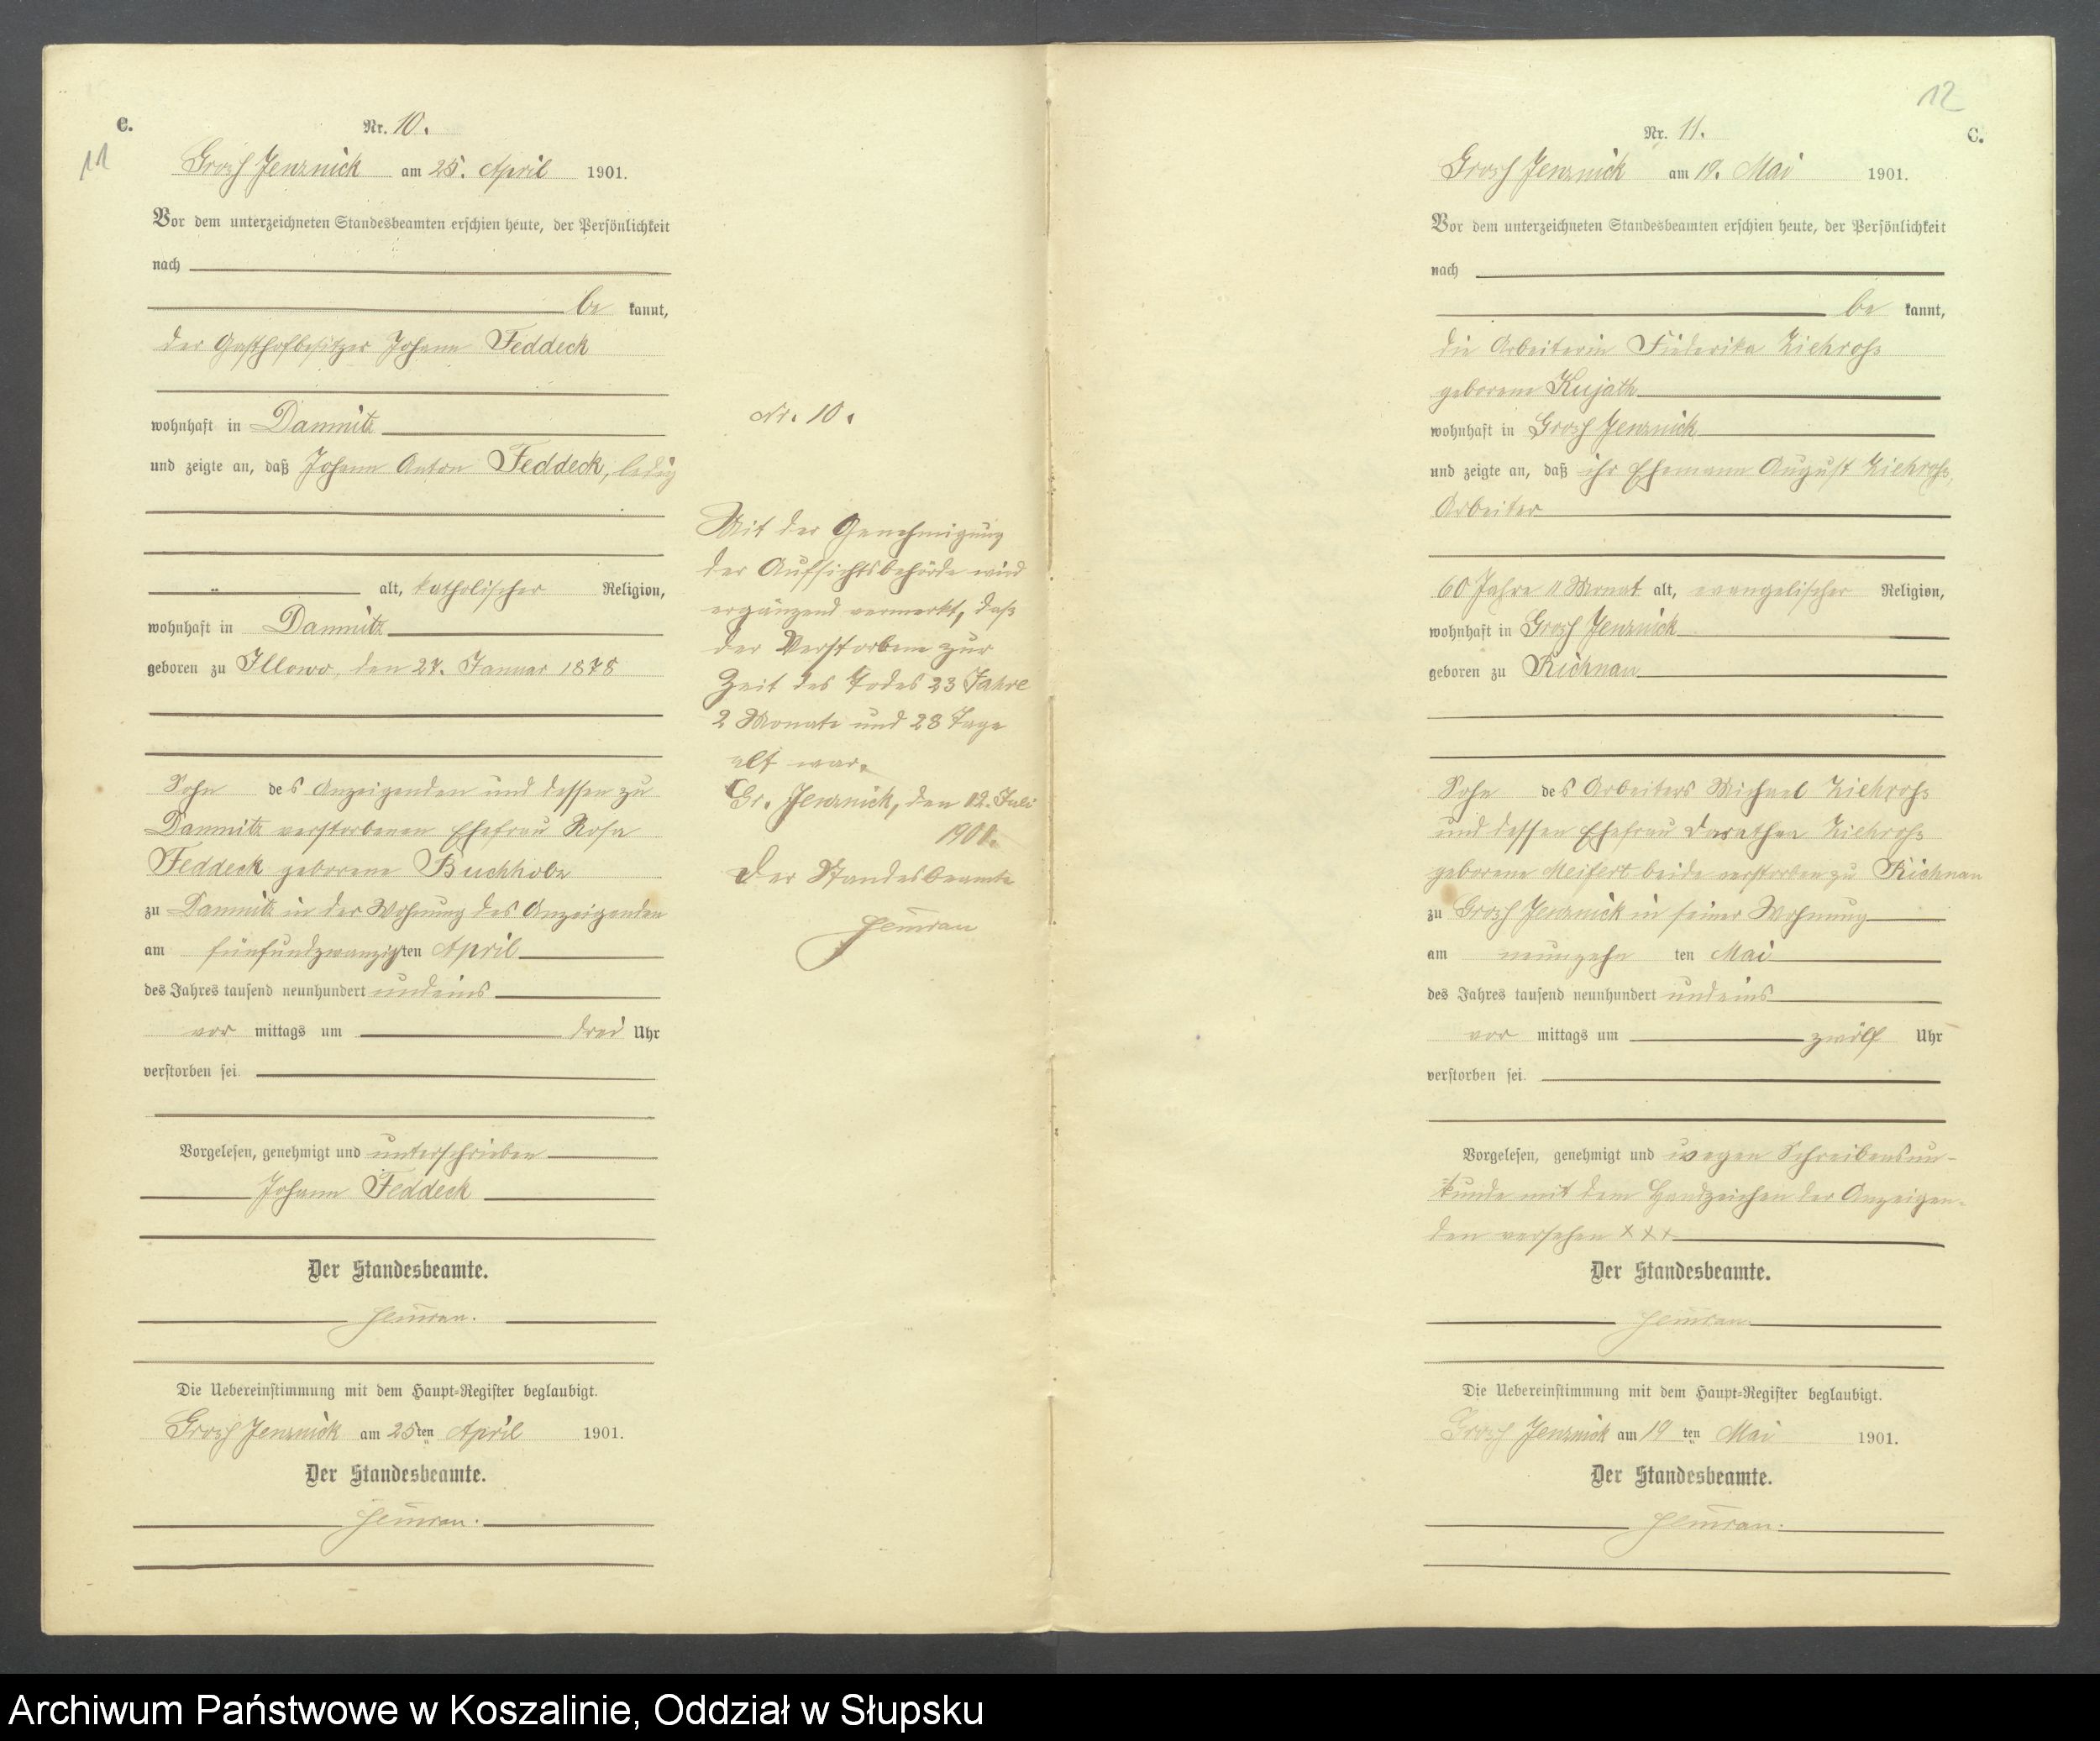 C.
11
Nr. 10.
Grosz Jenznick am 25. April 1901.
Vor dem unterzeichneten Standesbeamten erschien heute, der Persönlichkeit
nach
be kannt,
der Gasthofbesitzer Johann Feddeck
wohnhaft in Damnitz
und zeigte an, daß Johann Anton Feddeck, ledig
alt, katholischer Religion,
wohnhaft in Damnitz
geboren zu Illowo, den 27. Januar 1878
Sohn des Anzeigenden und dessen zu
Damnitz verstorbenen Ehefrau Rosa
Feddeck geborene Buchholz
zu Damnitz in der Wohnung des Anzeigenden
am fünfundzwanzigsten April
des Jahres tausend neunhundert undeins
vor mittags um drei Uhr
verstorben sei.
Vorgelesen, genehmigt und unterschrieben
Johann Feddeck
Der Standesbeamte.
Die Uebereinstimmung mit dem Haupt-Register beglaubigt.
Grosz Jenznick am 25ten April 1901.
Der Standesbeamte.
Nr. 10.
Mit der Genehmigung
der Aufsichtsbehörde wird
ergänzend vermerkt, daß
der Verstorbene zur
Zeit des Todes 23 Jahre
2 Monate und 28 Tage
alt war.
Gr. Jenznick, den 12. Juli
1901.
Der Standesbeamte
12
Nr. 11.
C.
Grosz Jenznick am 19. Mai 1901.
Vor dem unterzeichneten Standesbeamten erschien heute, der Persönlichkeit
nach
be kannt,
die Arbeiterin Friederika Ziehrohs
geborene Kujath
wohnhaft in Grosz Jenznick
und zeigte an, daß ihr Ehemann August Ziehrohs,
Arbeiter
60 Jahre 11 Monat alt, evangelischer Religion,
wohnhaft in Grosz Jenznick
geboren zu Richnau
Sohn des Arbeiters Michael Ziehrohs
und dessen Ehefrau Dorathea Ziehrohs
geborene Meifert beide verstorben zu Richnau
zu Grosz Jenznick in seiner Wohnung
am neunzehn ten Mai
des Jahres tausend neunhundert undeins
vor mittags um zwölf Uhr
verstorben sei.
Vorgelesen, genehmigt und wegen Schreibensun-
kunde mit dem Handzeichen der Anzeigen-
den versehen XXX
Der Standesbeamte.
Die Uebereinstimmung mit dem Haupt-Register beglaubigt.
Grosz Jenznick am 19 ten Mai 1901.
Der Standesbeamte.
Archiwum Państwowe w Koszalinie, Oddział w Słupsku